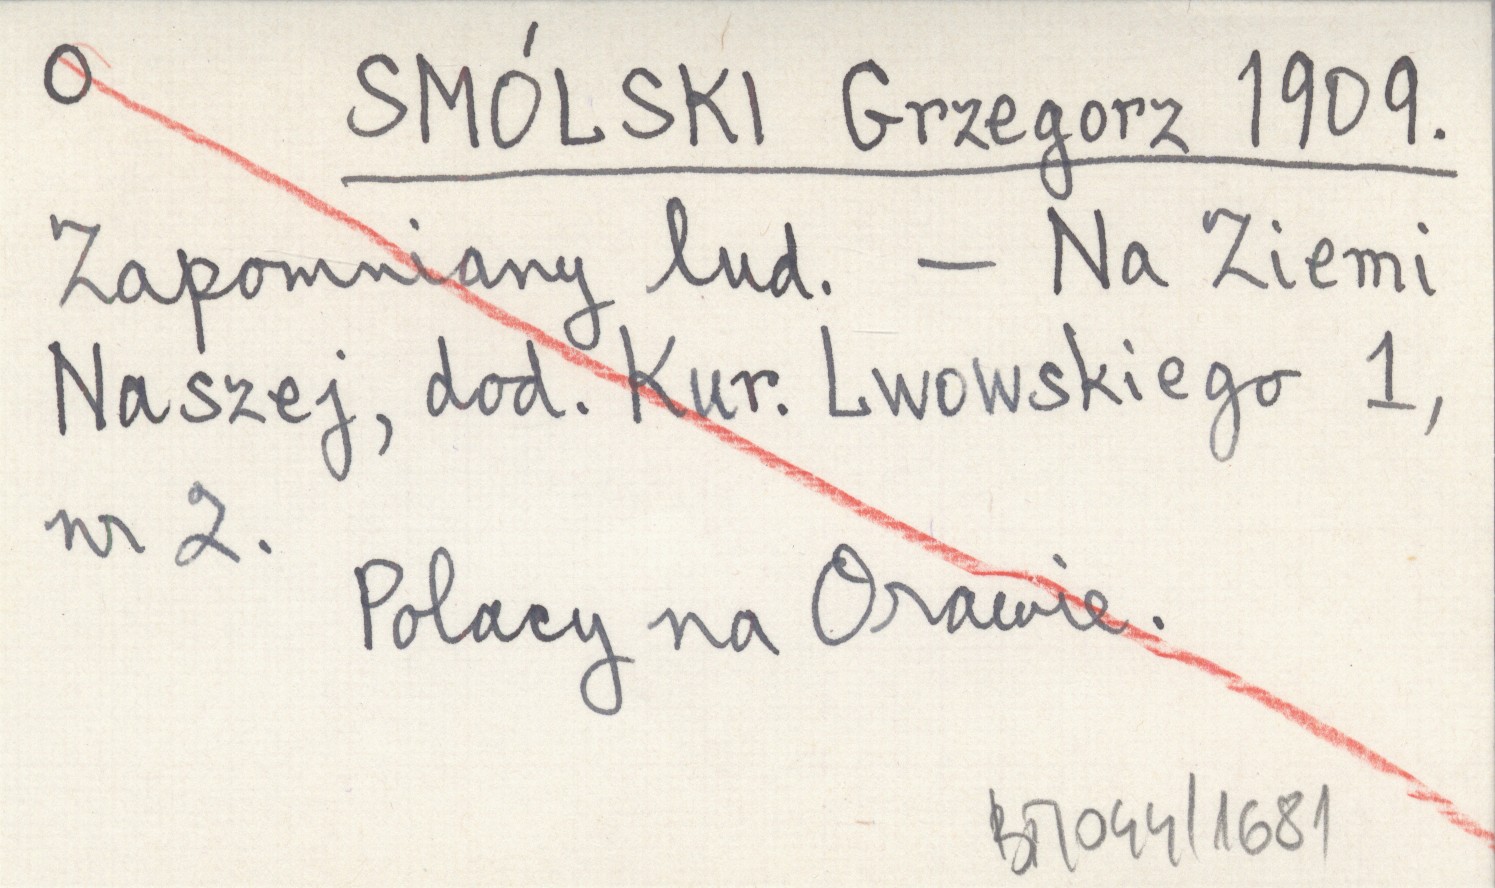 O SMÓLSKI Grzegorz 1909.
Zapomniany lud. — Na Ziemi
Naszej, dod. Kur. Lwowskiego 1,
nr 2.
Polacy na Orawie.
BT/044/1681